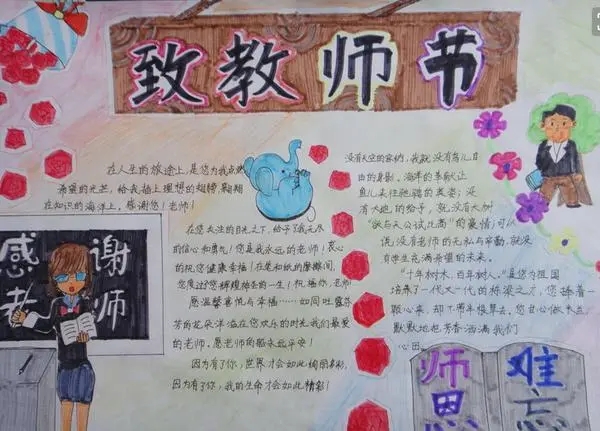 致教师节
在人生的旅途上,是您为我点燃
希望的光芒,给我插上理想的翅膀,翱翔
在知识的海洋上。感谢您!老师!
在您关注的目光之下,给予了我无尽
的信心和勇气!您是我永远的老师!衷心
的祝您健康幸福!在笔和纸的摩擦间,
您度过了您辉煌神圣的一生!祝福你,老师!
愿温馨喜悦与幸福……如同吐露芬
芳的花朵洋溢在您欢乐的时光我们最爱
的老师。愿老师的脑永远平安!
因为有了你,世界才会如此绚丽多彩,
因为有了你,我的生命才会如此精彩!
没有天空的容纳,我就没有鸟儿自
由的身影。海洋的奉献让
鱼儿来往驰骋的英姿;没
有大地的给予,就没有大树
“欲与天公试比高”的豪情;可以
说,没有老师的无私与帮助,就没
有学生充满希望的未来。
“十年树木,百年树人”,是您为祖国
培养了一代又一代的栋梁之才,您捧着一
颗心来,却不带半根草去。您甘心做
默默地把芳香洒满我们
心田。
感谢
老师
师恩
难忘